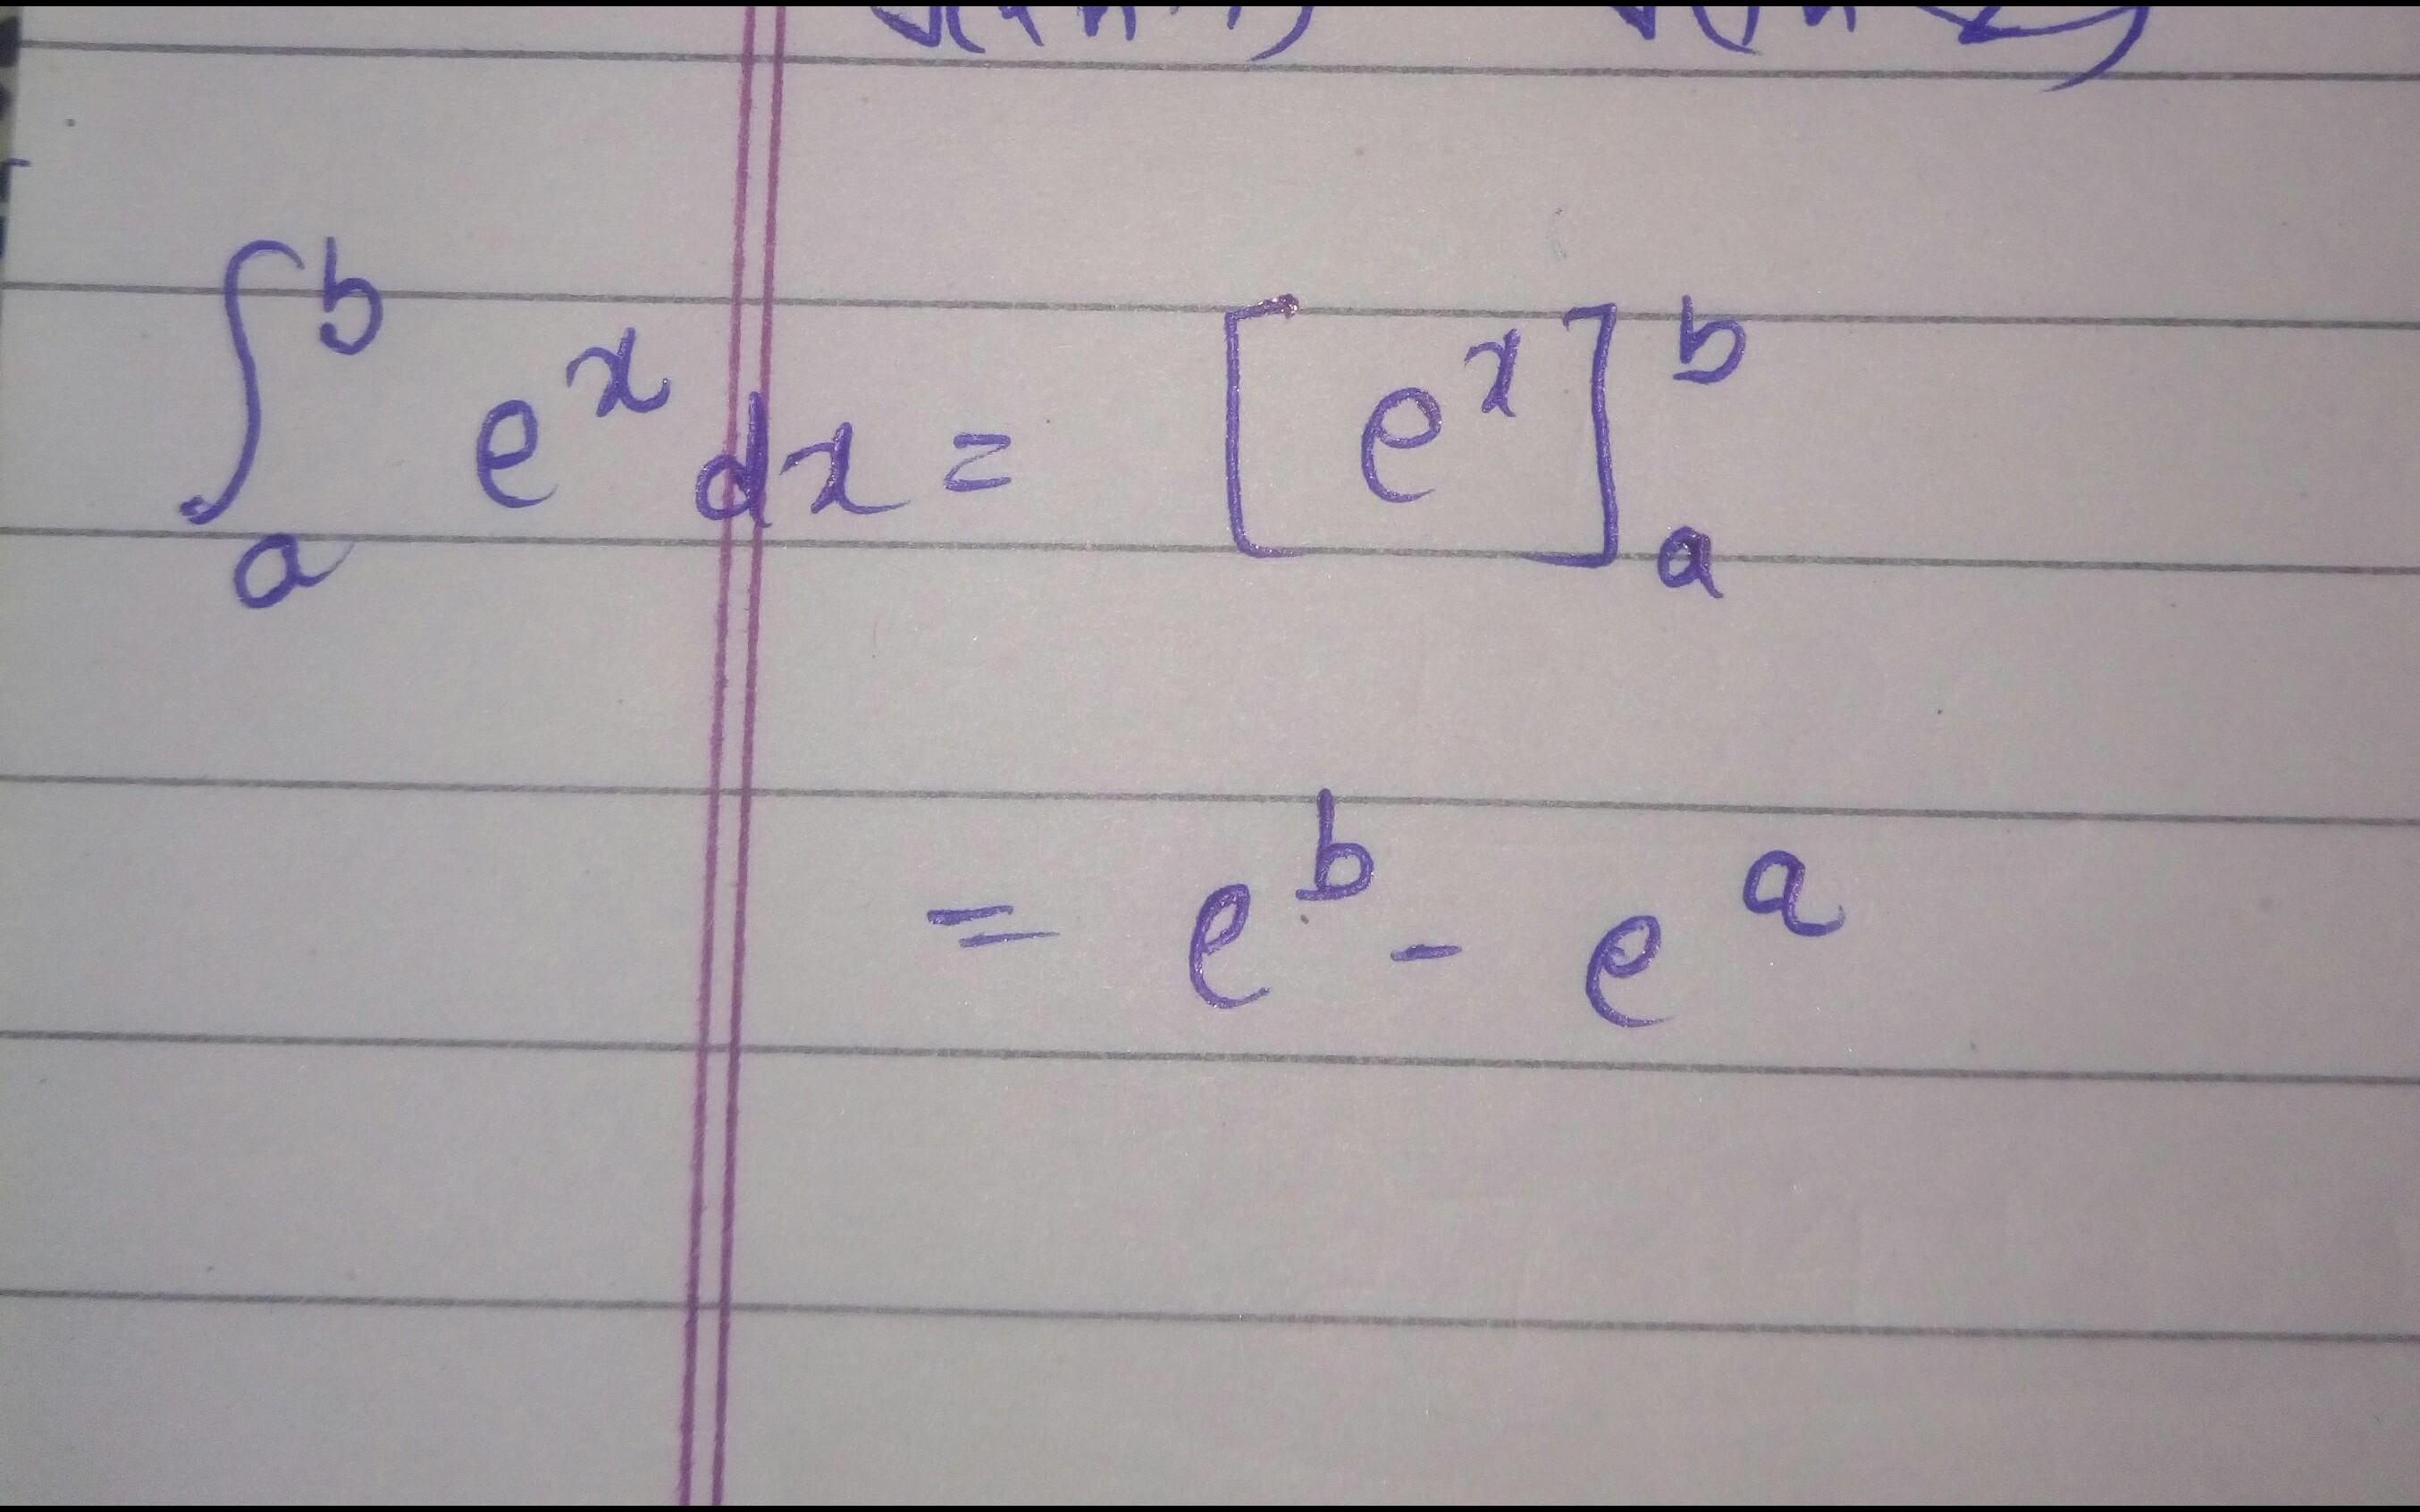 ∫_a^b e^x dx = [e^x]_a^b
= e^b - e^a